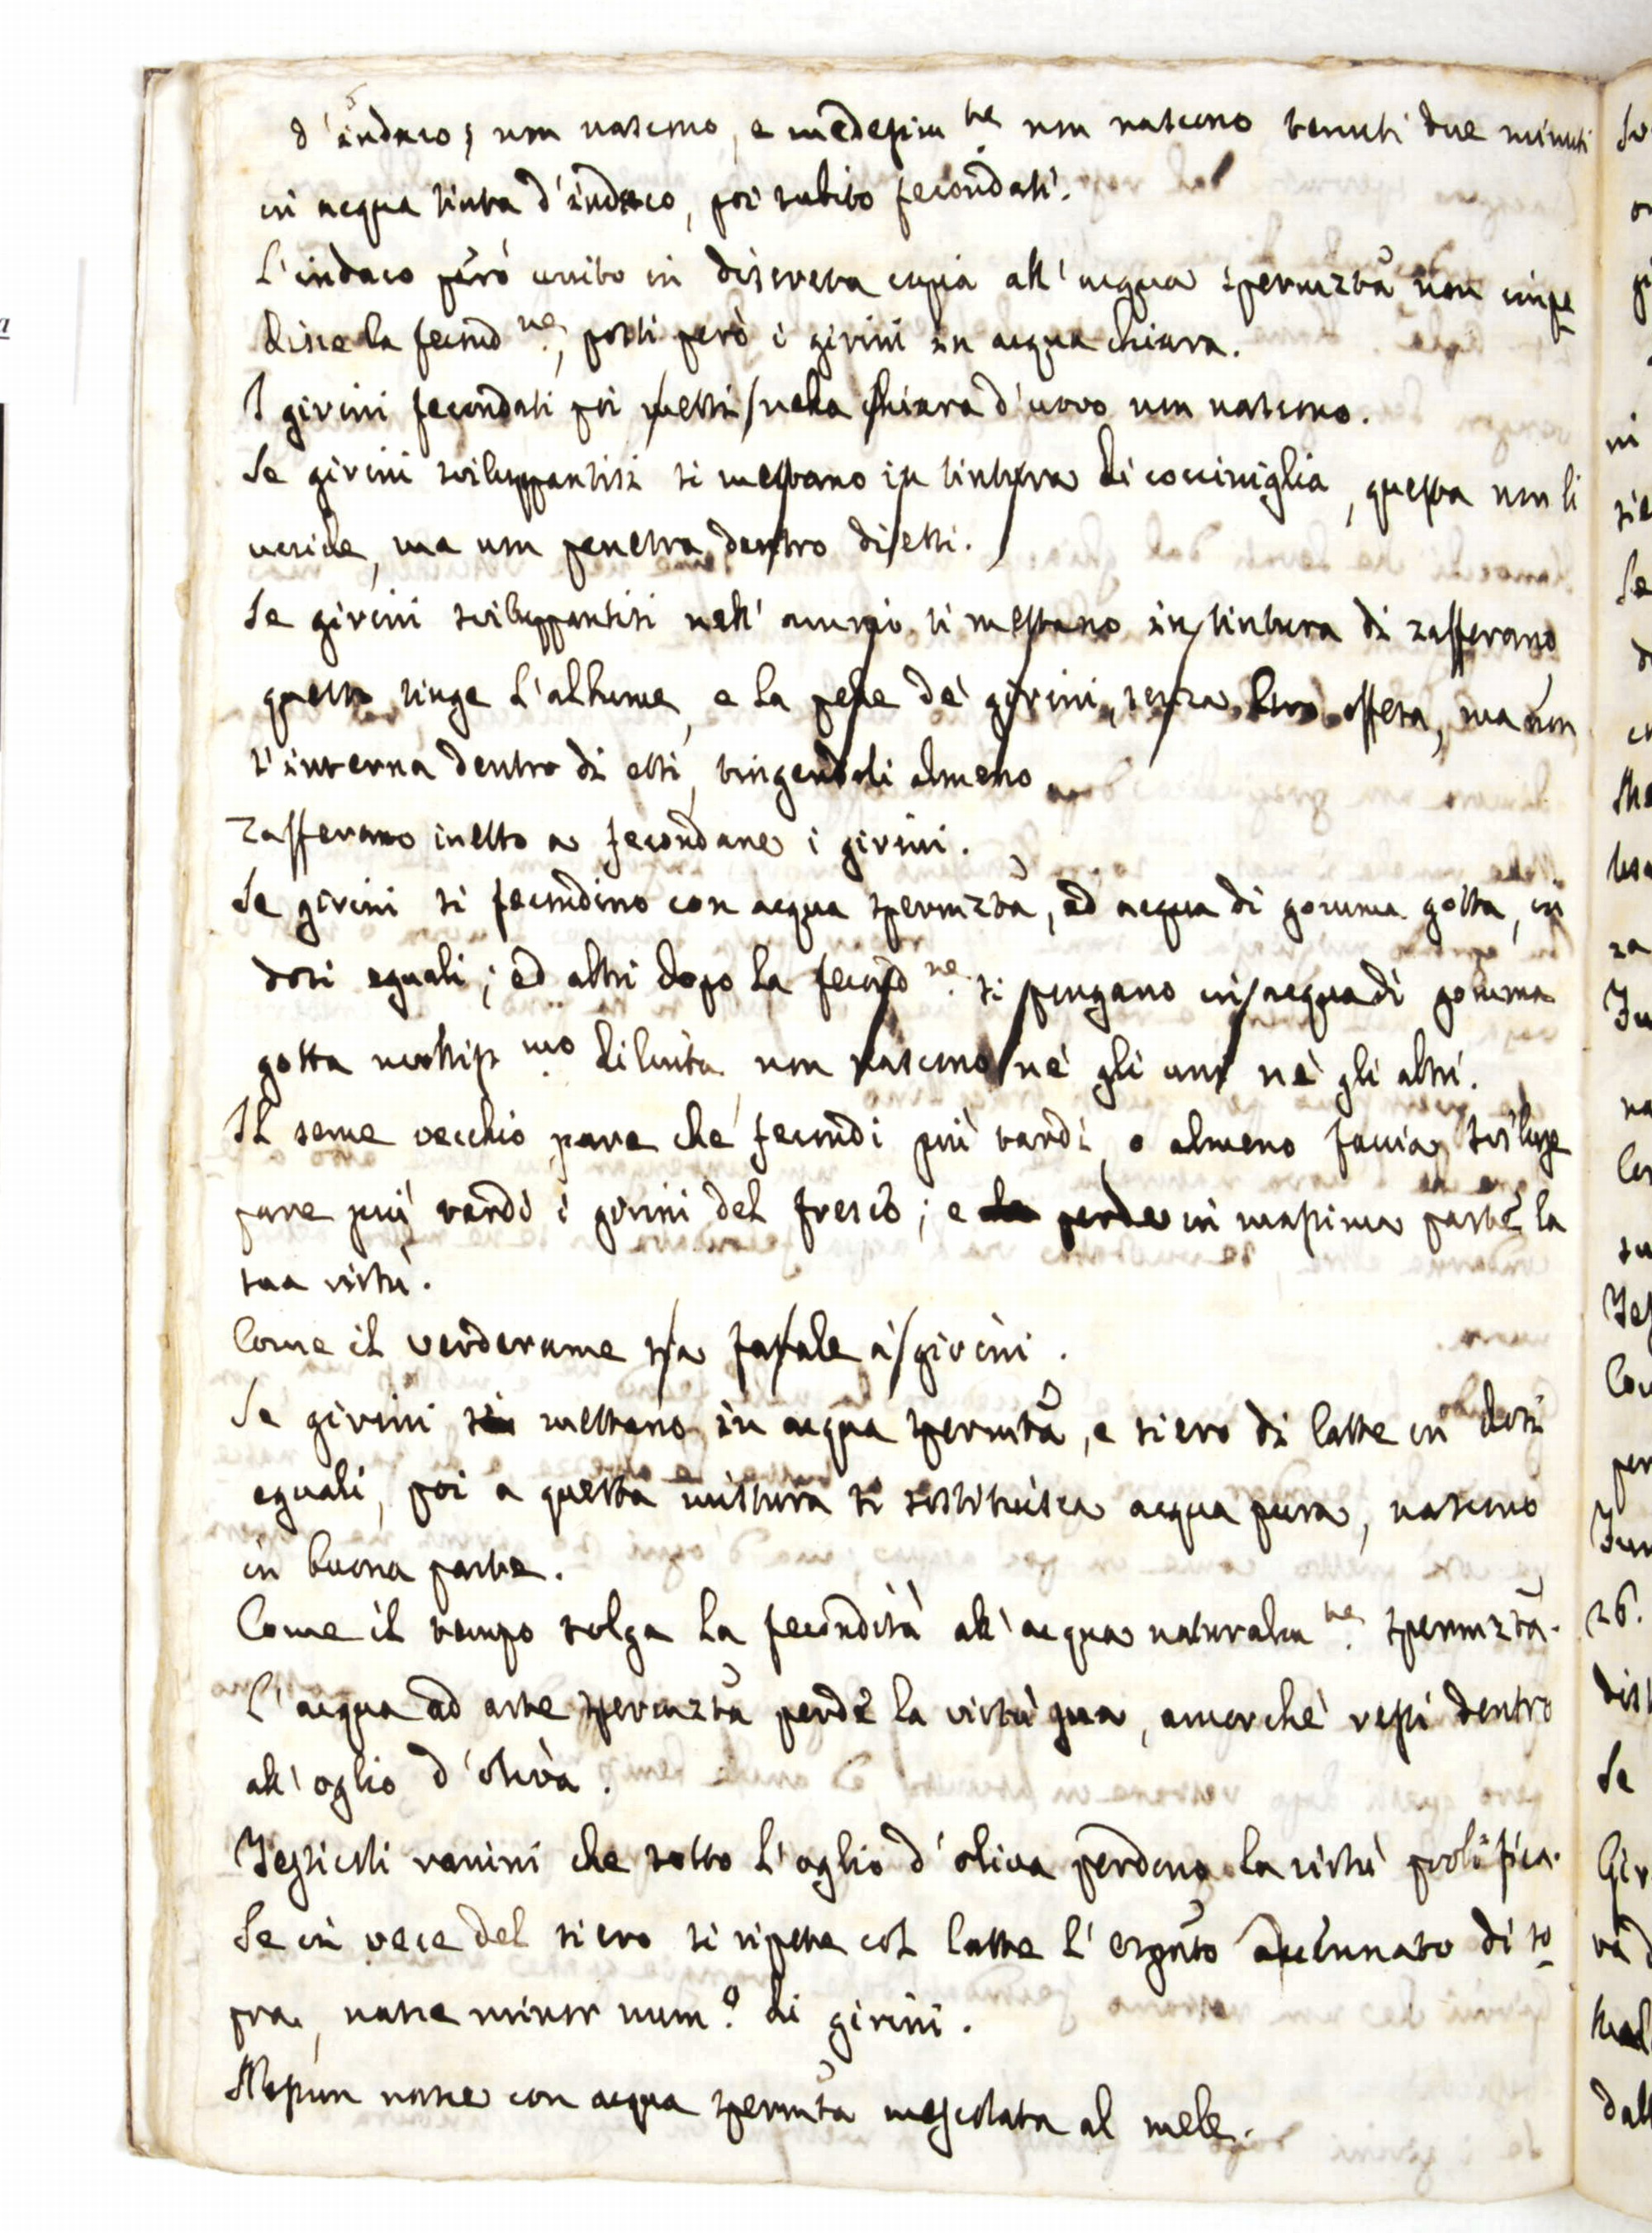 d'indaco, non nascono, e medesim.te non nascono tenuti due minuti
in acqua tinta d'indaco, poi subito fecondati.
L'indaco però unito in discreta copia all'acqua spermzta non impe
disce la fecond.ne, posti però i girini in acqua chiara.
I girini fecondati poi messi nella chiara d'uovo non nascono.
Se girini sviluppantisi si mettano in tintura di cocciniglia, questa non li
uccide, ma non penetra dentro di essi.
Se girini sviluppantisi nell' si mettano in tintura di zafferano
questo tinge l'albume, e la pelle de' girini, senza loro offesa, ma non
s'interna dentro di essi, tingendoli almeno.
Zafferano inetto a fecondare i girini.
Se girini si fecondino con acqua spermzta, ed acqua di gomma gotta, in
dosi eguali; ed altri dopo la fecond.ne si pongano in acqua di gomma
gotta moltiss.mo diluita, non nascono nè gli uni nè gli altri.
Il seme vecchio pare che fecondi più tardi, o almeno faccia svilup
pare più tardi i girini del fresco; e perde in massima parte la
sua virtù.
Come il verderame sia fatale ai girini.
Se girini si mettano in acqua spermta, e siero di latte in dosi
eguali, poi a questa mistura si sostituisca acqua pura, nascono
in buona parte.
Come il tempo tolga la fecondità all'acqua naturalm.te spermzta.
L'acqua ad arte spermzta perde la virtù sua, ancorchè resti dentro
all'oglio d'oliva.
Testicoli ranini che sotto l'oglio d'oliva perdono la virtù prolifica.
Se in vece del siero si ripete col latte l'esprto accennato di so
pra, nasce minor num.o di girini.
Nessun nasce con acqua spermta mescolata al mele.